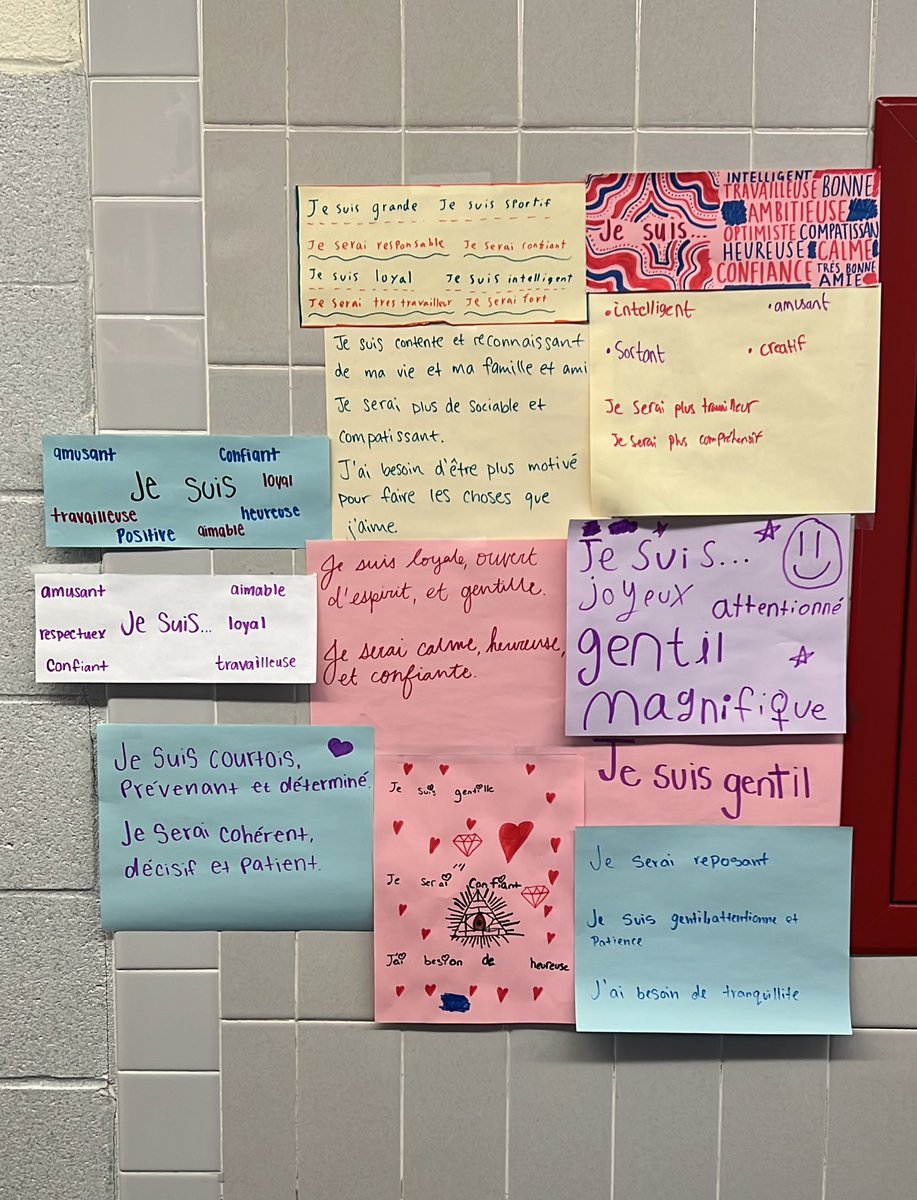 Je suis grande Je suis sportif
Je serai responsable Je serai confiant
Je suis loyal Je suis intelligent
Je serai tres travailleur Je serai fort
Je suis...
INTELLIGENT
TRAVAILLEUSE BONNE
AMBITIEUSE
OPTIMISTE COMPATISSAN
HEUREUSE CALME
CONFIANCE TRÉS BONNE
AMIE
•intelligent •amusant
•Sortant •creatif
Je serai plus travailleur
Je serai plus compréhensif
Je suis contente et reconnaissant
de ma vie et ma famille et ami
Je serai plus de sociable et
compatissant.
J'ai besoin d'être plus motivé
pour faire les choses que
j'aime.
amusant Confiant
Je suis loyal
travailleuse heureuse
Positive aimable
amusant aimable
respectuex Je Suis... loyal
Confiant travailleuse
Je suis loyale, ouvert
d'espirit, et gentille.
Je serai calme, heureuse,
et confiante.
Je suis...
joyeux attentionné
gentil
magnifique
Je Suis courtois,
Prévenant et déterminé.
Je Serai cohérent,
décisif et Patient.
Je suis gentille
Je serai Confiant
J'ai besion de heureuse
Je suis gentil
Je serai reposant
Je suis gentil,attentionne et
Patience
J'ai besoin de tranquillite